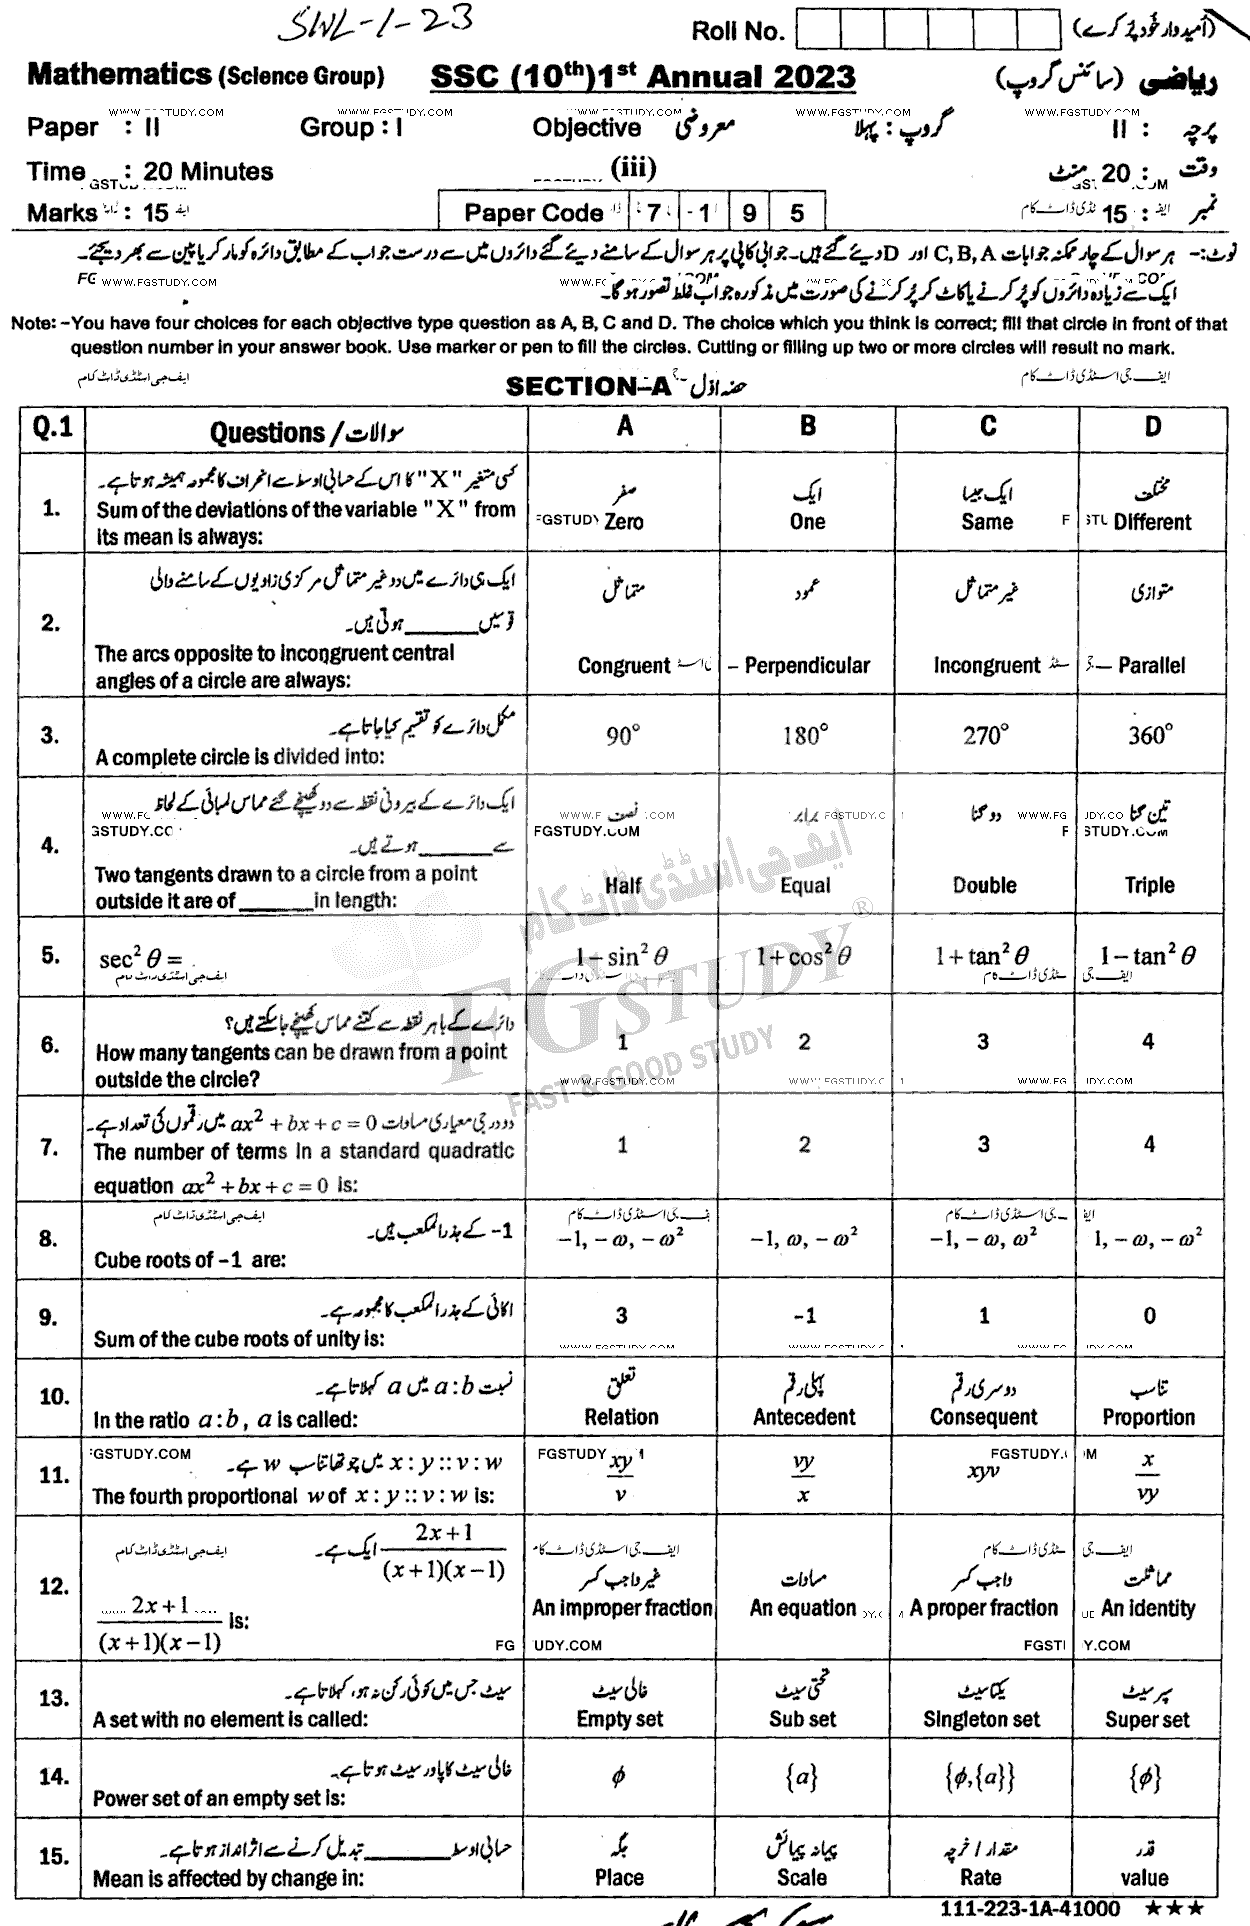 SWL-1-23
Roll No. (امیدوار خود پُر کرے)
Mathematics (Science Group) SSC (10th) 1st Annual 2023 ریاضی (سائنس گروپ)
WWW.FGSTUDY.COM WWW.FGSTUDY.COM WWW.FGSTUDY.COM WWW.FGSTUDY.COM
Paper : II Group : I Objective معروضی گروپ : پہلا پرچہ : II
Time : 20 Minutes (iii) وقت : 20 منٹ
Marks : 15 Paper Code 7 1 9 5 نمبر : 15
نوٹ:- ہر سوال کے چار ممکنہ جوابات C, B, A اور D دیئے گئے ہیں۔ جوابی کاپی پر ہر سوال کے سامنے دیئے گئے دائروں میں سے درست جواب کے مطابق دائرہ کو مارکر یا پین سے بھر دیجئے۔
ایک سے زیادہ دائروں کو پُر کرنے یا کاٹ کر پُر کرنے کی صورت میں مذکورہ جواب غلط تصور ہو گا۔
Note: -You have four choices for each objective type question as A, B, C and D. The choice which you think is correct; fill that circle in front of that
question number in your answer book. Use marker or pen to fill the circles. Cutting or filling up two or more circles will result no mark.
ایف جی اسٹڈی ڈاٹ کام SECTION-A حصہ اوّل ایف جی اسٹڈی ڈاٹ کام
Q.1 Questions / سوالات A B C D
1. کسی متغیر "X" کا اس کے حسابی اوسط سے انحراف کا مجموعہ ہمیشہ ہوتا ہے۔ صفر ایک ایک جیسا مختلف
Sum of the deviations of the variable "X" from Zero One Same Different
its mean is always:
2. ایک ہی دائرے میں دو غیر متماثل مرکزی زاویوں کے سامنے والی متماثل عمود غیر متماثل متوازی
قوسیں ______ ہوتی ہیں۔
The arcs opposite to incongruent central Congruent Perpendicular Incongruent Parallel
angles of a circle are always:
3. مکمل دائرے کو تقسیم کیا جاتا ہے۔ 90° 180° 270° 360°
A complete circle is divided into:
4. ایک دائرے کے بیرونی نقطہ سے دو کھینچے گئے مماس لمبائی کے لحاظ نصف برابر دو گنا تین گنا
سے ______ ہوتے ہیں۔
Two tangents drawn to a circle from a point Half Equal Double Triple
outside it are of ______ in length:
5. sec² θ = 1 − sin² θ 1 + cos² θ 1 + tan² θ 1 − tan² θ
6. دائرے کے باہر نقطہ سے کتنے مماس کھینچے جا سکتے ہیں؟
How many tangents can be drawn from a point 1 2 3 4
outside the circle?
7. دو درجی معیاری مساوات ax² + bx + c = 0 میں رقموں کی تعداد ہے۔
The number of terms in a standard quadratic 1 2 3 4
equation ax² + bx + c = 0 is:
8. -1 کے جذر المکعب ہیں۔ −1, −ω, −ω² −1, ω, −ω² −1, −ω, ω² 1, −ω, −ω²
Cube roots of -1 are:
9. اکائی کے جذر المکعب کا مجموعہ ہے۔ 3 -1 1 0
Sum of the cube roots of unity is:
10. نسبت a : b میں a کہلاتا ہے۔ تعلق پہلی رقم دوسری رقم تناسب
In the ratio a : b , a is called: Relation Antecedent Consequent Proportion
11. x : y :: v : w میں چوتھا تناسب w ہے۔ xy/v vy/x xyv x/vy
The fourth proportional w of x : y :: v : w is:
12. 2x+1/(x+1)(x−1) ایک ہے۔ غیر واجب کسر مساوات واجب کسر مماثلت
2x+1/(x+1)(x−1) is: An improper fraction An equation A proper fraction An identity
13. سیٹ جس میں کوئی رکن نہ ہو، کہلاتا ہے۔ خالی سیٹ تحتی سیٹ یکتا سیٹ سپر سیٹ
A set with no element is called: Empty set Sub set Singleton set Super set
14. خالی سیٹ کا پاور سیٹ ہوتا ہے۔ ϕ {a} {ϕ,{a}} {ϕ}
Power set of an empty set is:
15. حسابی اوسط ______ تبدیل کرنے سے اثر انداز ہوتا ہے۔ جگہ پیمانہ پیمائش مقدار / خرچہ قدر
Mean is affected by change in: Place Scale Rate value
111-223-1A-41000 ★★★
ایف جی اسٹڈی ڈاٹ کام
FGSTUDY®
FAST & GOOD STUDY